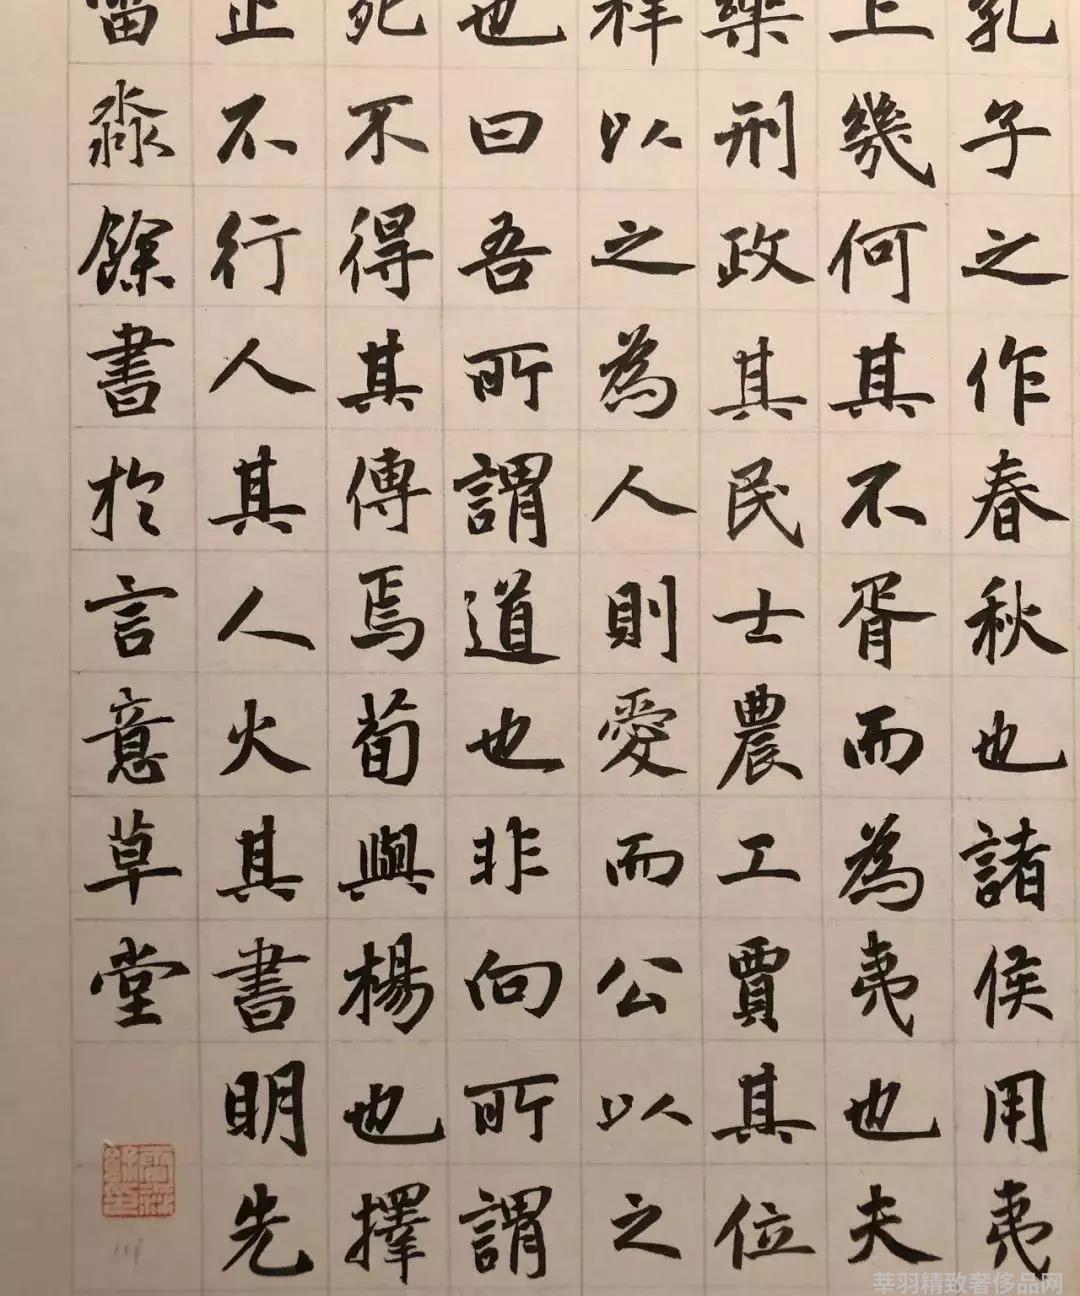 孔子之作春秋也諸侯用夷
上幾何其不胥而為夷也夫
樂刑政其民士農工賈其位
祥以之為人則愛而公以之
也曰吾所謂道也非向所謂
死不得其傳焉荀與楊也擇
止不行人其人火其書明先
雷淼餘書於言意草堂
莘羽精致奢侈品网